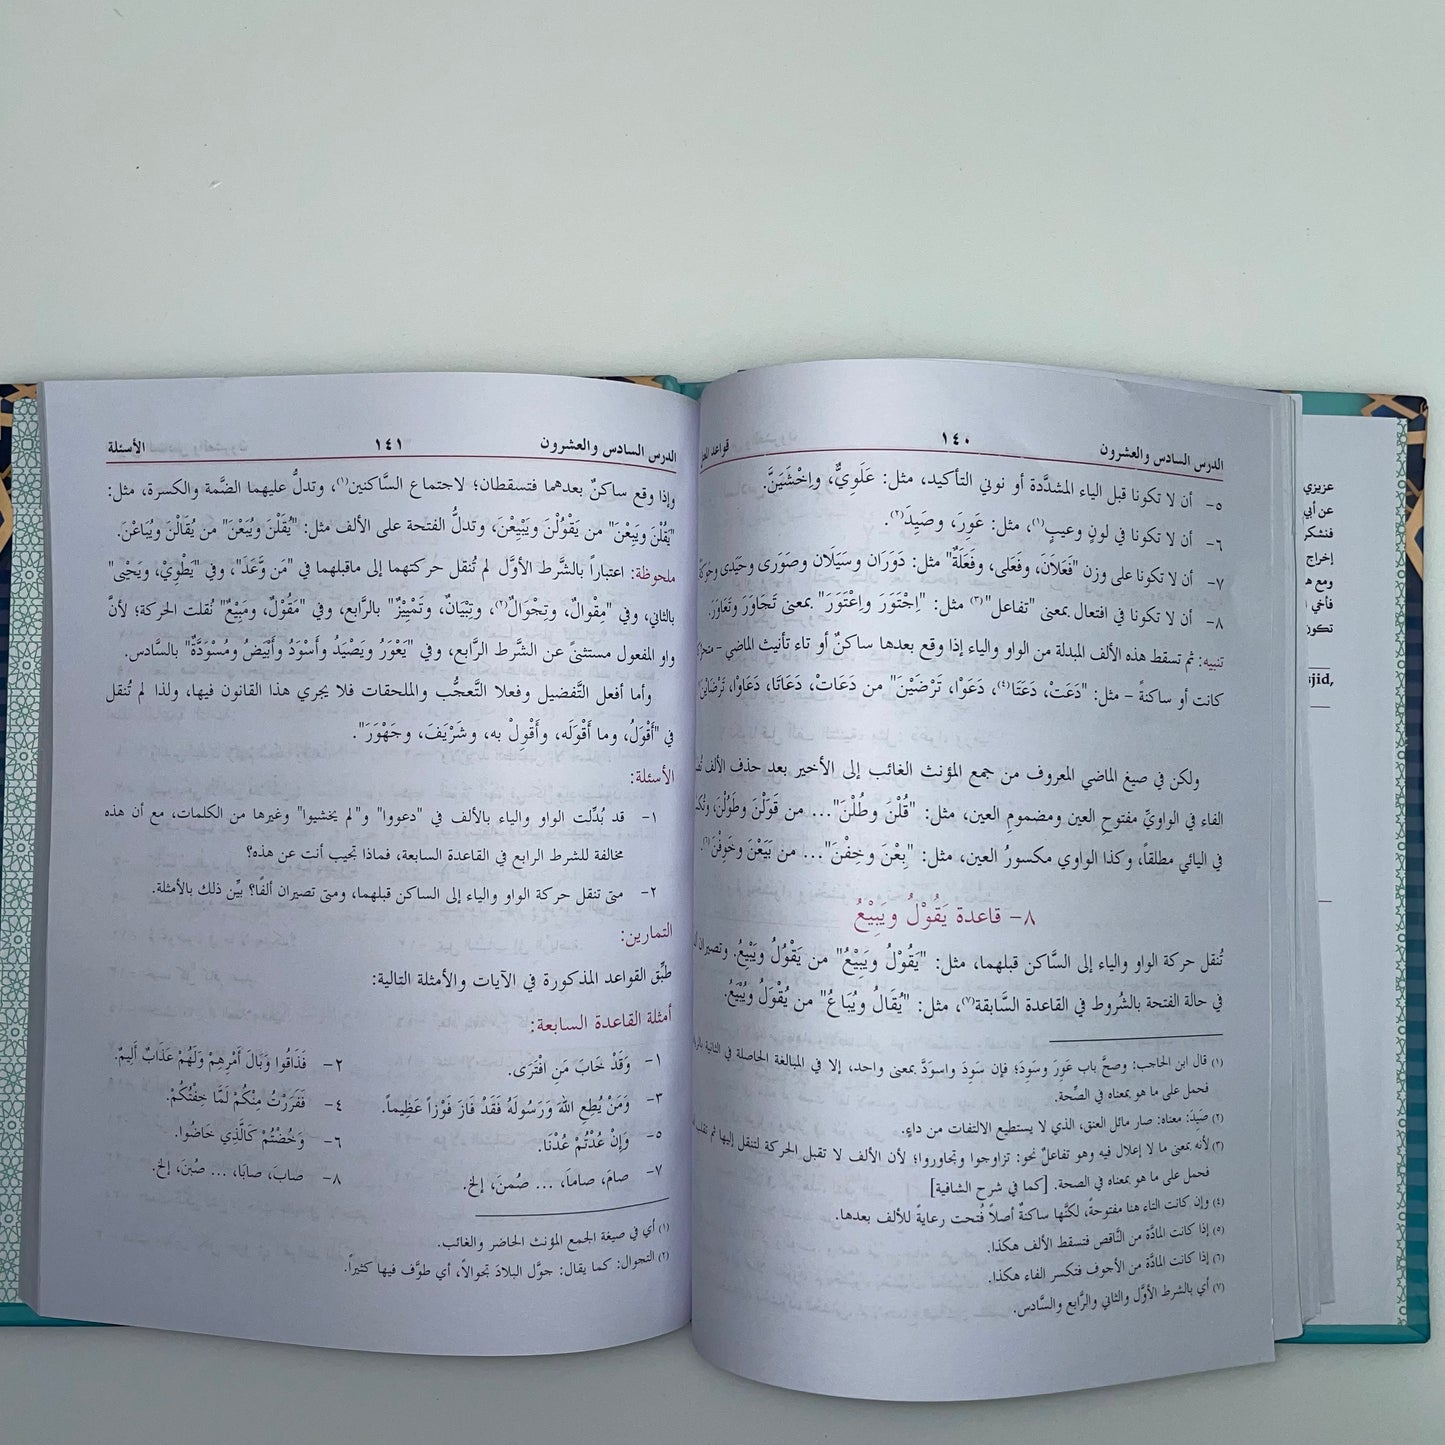 الدرس السادس والعشرون ١٤٠ قواعد
٥- أن لا تكونا قبل الياء المشدَّدة أو نوني التأكيد، مثل: عَلَوِيٌّ، واِخْشَيَنَّ.
٦- أن لا تكونا في لونٍ وعيبٍ(١)، مثل: عَوِرَ، وصَيِدَ(٢).
٧- أن لا تكونا على وزن "فَعَلاَن، وفَعَلى، وفَعَلَةٌ" مثل: دَوَرَان وسَيَلَان وصَوَرَى وحَيَدَى
٨- أن لا تكونا في افتعال بمعنى "تفاعل"(٣) مثل: "اِجْتَوَرَ واِعْتَوَرَ" بمعنى تَجَاوَرَ وتَعَاوَرَ.
تنبيه: ثم تسقط هذه الألف المبدلة من الواو والياء إذا وقع بعدها ساكنٌ أو تاء تأنيث الماضي –
كانت أو ساكنةً – مثل: "دَعَتْ، دَعَتَا(٤)، دَعَوْا، تَرْضَيْنَ" من دَعَاتْ، دَعَاتَا، دَعَاوْا،
ولكن في صيغ الماضي المعروف من جمع المؤنث الغائب إلى الأخير بعد حذف الألف
الفاء في الواويِّ مفتوحِ العين ومضمومِ العين، مثل: "قُلْنَ وطُلْنَ"... من قَوَلْنَ وطَوُلْنَ،
في اليائي مطلقاً، وكذا الواوي مكسورُ العين، مثل: "بِعْنَ وخِفْنَ"... من بَيَعْنَ وخَوِفْنَ(٦).
٨- قاعدة يَقُوْلُ ويَبِيْعُ
تُنقل حركة الواو والياء إلى السَّاكن قبلهما، مثل: "يَقُوْلُ ويَبِيْعُ" من يَقْوُلُ ويَبْيِعُ. وتصيران
في حالة الفتحة بالشُروط في القاعدة السَّابقة(٧)، مثل: "يُقَالُ ويُبَاعُ" من يُقْوَلُ ويُبْيَعُ.
(١) قال ابن الحاجب: وصحَّ باب عَوِرَ وسَوِدَ؛ فإن سَوِدَ واسوَدَّ بمعنى واحد، إلا في المبالغة الحاصلة في الثانية
فحمل على ما هو بمعناه في الصِّحة.
(٢) صَيِدَ: معناه: صار مائل العنق، الذي لا يستطيع الالتفات من داءٍ.
(٣) لأنه بمعنى ما لا إعلال فيه وهو تفاعلٌ نحو: تزاوجوا وتجاوروا؛ لأن الألف لا تقبل الحركة لتنقل إليها ثم
فحمل على ما هو بمعناه في الصحة. [كما في شرح الشافية]
(٤) وإن كانت التاء هنا مفتوحةً، لكنَّها ساكنةٌ أصلاً فُتحت رعايةً للألف بعدها.
(٥) إذا كانت المادَّة من النَّاقص فتسقط الألف هكذا.
(٦) إذا كانت المادَّة من الأجوف فتكسر الفاء هكذا.
(٧) أي بالشرط الأوَّل والثاني والرَّابع والسَّادس.
الدرس السادس والعشرون ١٤١ الأسئلة
وإذا وقع ساكنٌ بعدهما فتسقطان؛ لاجتماع السَّاكنين(١)، وتدلُّ عليهما الضَّمة والكسرة، مثل:
"يَقُلْنَ ويَبِعْنَ" من يَقْوُلْنَ ويَبْيِعْنَ، وتدلُّ الفتحة على الألف مثل: "يُقَلْنَ ويُبَعْنَ" من يُقَالْنَ ويُبَاعْنَ.
ملحوظة: اعتباراً بالشَّرط الأوَّل لم تُنقل حركتهما إلى ماقبلهما في "مَن وَّعَدَ"، وفي "يَطْوِيْ، ويَحْيٰى"
بالثاني، وفي "مِقْوالٌ، وتِجْوَالٌ(٢)، وتِبْيَانٌ، وتَمْيِيْزٌ" بالرَّابع، وفي "مَقُوْلٌ، ومَبِيْعٌ" نُقلت الحركة؛ لأنَّ
واو المفعول مستثنىً عن الشَّرط الرَّابع، وفي "يَعْوَرُ ويَصْيَدُ وأَسْوَدُ وأَبْيَضُ ومُسْوَدَّةٌ" بالسَّادس.
وأما أفعل التَّفضيل وفعلا التَّعجُّب والملحقات فلا يجري هذا القانون فيها، ولذا لم تُنقل
في "أَقْوَلُ، وما أَقْوَلَه، وأَقْوِلْ به، وشَرْيَفَ، وجَهْوَرَ".
الأسئلة:
١- قد بُدِّلت الواو والياء بالألف في "دعووا" و"لم يخشيوا" وغيرها من الكلمات، مع أن هذه
مخالفة للشرط الرابع في القاعدة السابعة، فماذا تجيب أنت عن هذه؟
٢- متى تنقل حركة الواو والياء إلى الساكن قبلهما، ومتى تصيران ألفًا؟ بيِّن ذلك بالأمثلة.
التمارين:
طبِّق القواعد المذكورة في الآيات والأمثلة التالية:
أمثلة القاعدة السابعة:
١- وَقَدْ خَابَ مَنِ افْتَرَى. ٢- فَذَاقُوا وَبَالَ أَمْرِهِمْ وَلَهُمْ عَذَابٌ أَلِيمٌ.
٣- وَمَنْ يُطِعِ اللهَ وَرَسُولَهُ فَقَدْ فَازَ فَوْزاً عَظِيماً. ٤- فَفَرَرْتُ مِنْكُمْ لَمَّا خِفْتُكُمْ.
٥- وَإِنْ عُدْتُمْ عُدْنَا. ٦- وَخُضْتُمْ كَالَّذِي خَاضُوا.
٧- صامَ، صاماَ، ... صُمنَ، إلخ. ٨- صابَ، صابَا، ... صُبْنَ، إلخ.
(١) أي في صيغة الجمع المؤنث الحاضر والغائب.
(٢) التجوال: كما يقال: جوَّل البلادَ تجوالاً، أي طوَّف فيها كثيراً.
عزيزي
عن أبي
فنشكر
إخراج
ومع
فأخي
تكون